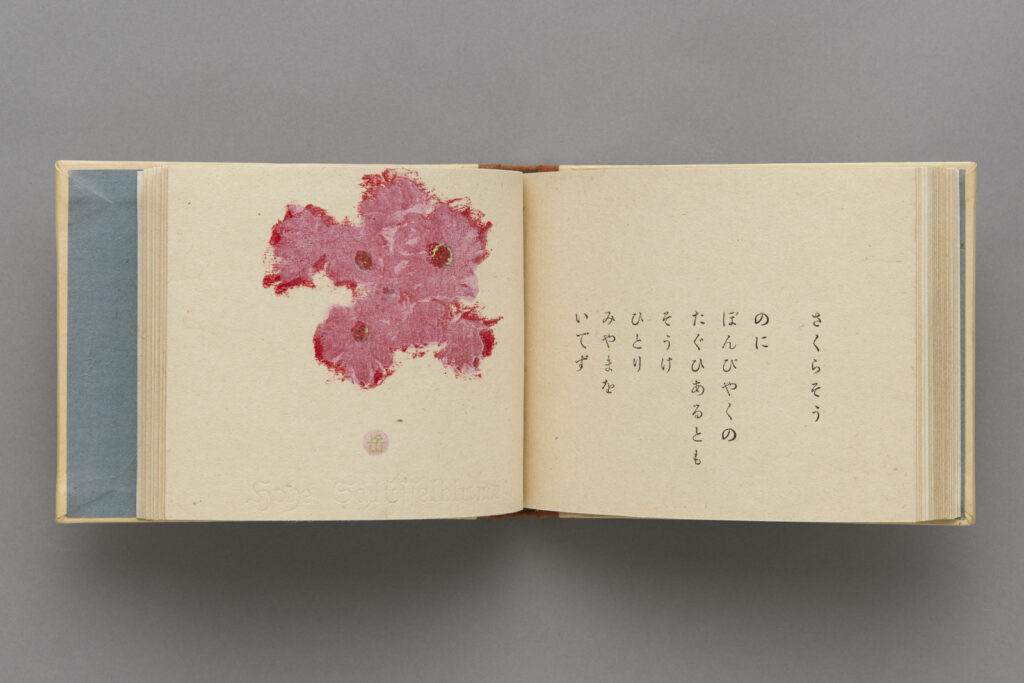 さくらそう
のに
ぼんびやくの
たぐひあるとも
そうけ
ひとり
みやまを
いでず
岳
Hohe Schlüsselblume